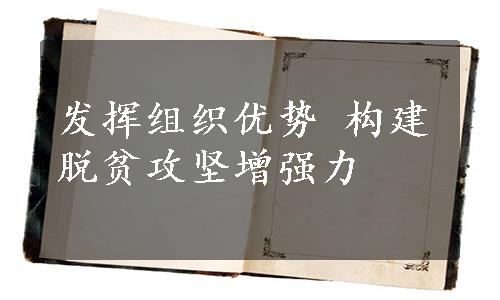 发挥组织优势 构建
脱贫攻坚增强力